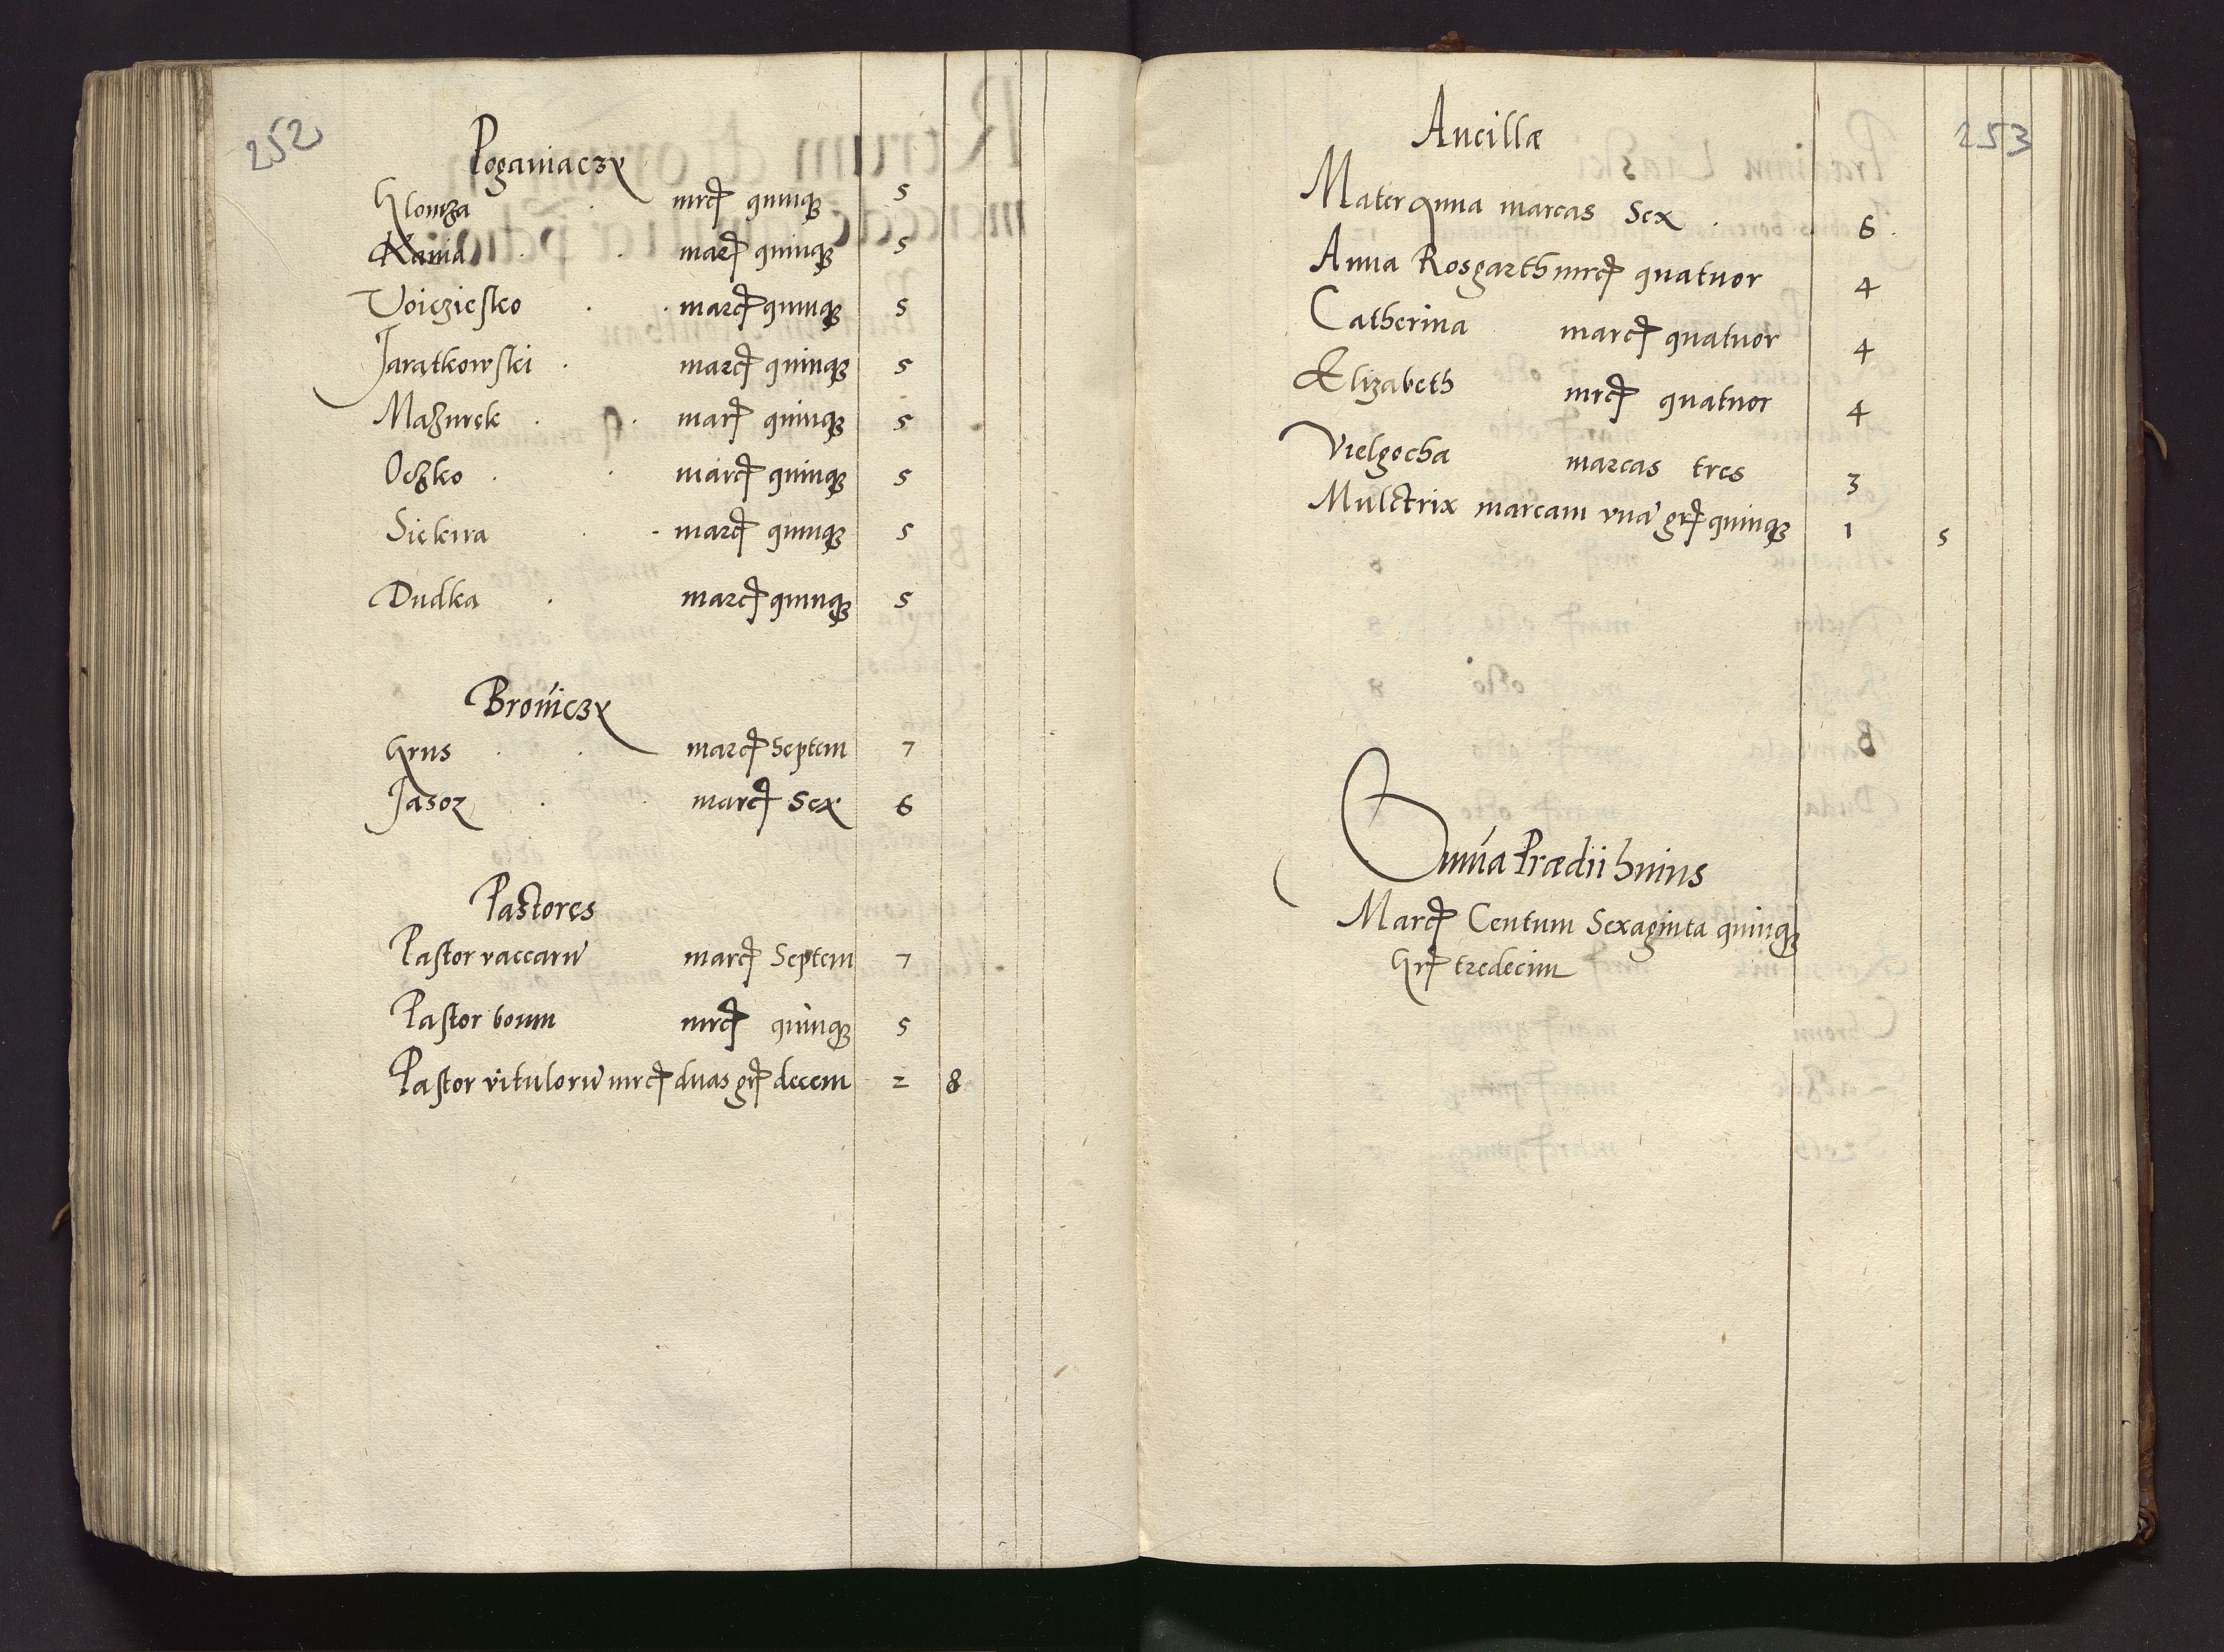 252
Poganiaczy
Glomza mrcꝭ quinqꝫ 5
Kania marꝭ quinqꝫ 5
Voiczieſko marcꝭ quinqꝫ 5
Jarątkowſki marcꝭ quinqꝫ 5
Mazurek marꝭ quinqꝫ 5
Oczko marcꝭ quinqꝫ 5
Siekira marcꝭ quinqꝫ 5
Dudka marcꝭ quinqꝫ 5
Broviczy
Grus marcꝭ Septem 7
Jasor marcꝭ Sex 6
Pastores
Paſtor vaccarū marcꝭ Septem 7
Paſtor boum mrcꝭ quinqꝫ 5
Paſtor vitulorū mrcꝭ duas grꝭ decem 2 8
253
Ancillæ
Mater Anna marcas Sex 6
Anna Rosgarth mrcꝭ quatuor 4
Catherina marcꝭ quatuor 4
Elizabeth mrcꝭ quatuor 4
Vielgocha marcas tres 3
Mulctrix marcam vnā grꝭ quinqꝫ 1 5
Sum̄a Prædii huius
Marcꝭ Centum Sexaginta quinqꝫ
Grꝭ tredecim